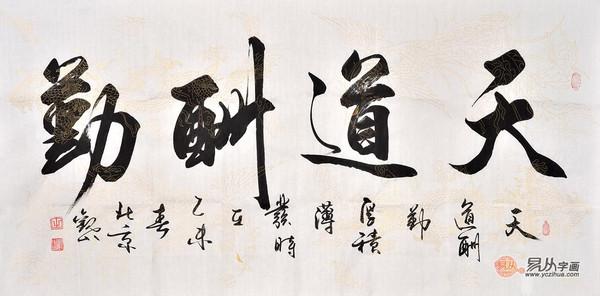 天道酬勤
天道酬勤厚積薄發時在乙未春北京
易从字画
www.yczihua.com